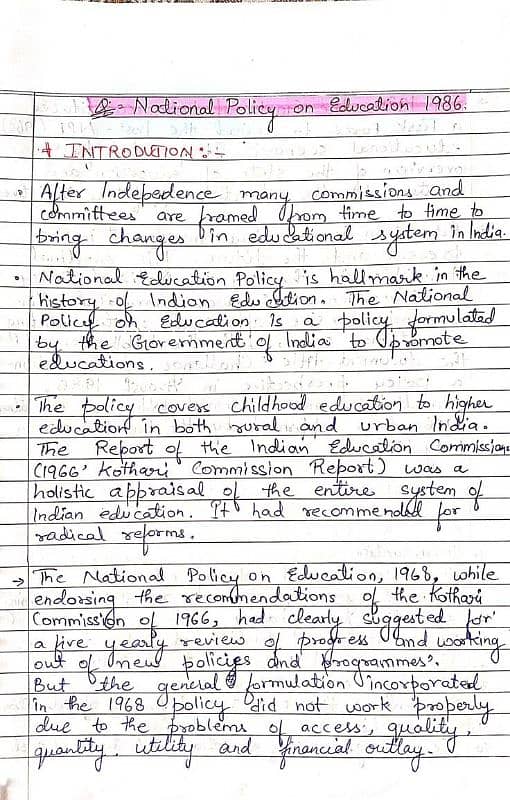 Q:- National Policy on Education 1986.
* INTRODUTION :-
• After Indepedence many commissions and
committees are framed from time to time to
bring changes in educational system in India.
• National Education Policy is hallmark in the
history of Indian Education. The National
Policy on Education is a policy formulated
by the Government of India to promote
educations.
• The policy covers childhood education to higher
education in both rural and urban India.
The Report of the Indian Education Commission
(1966' Kothari Commission Report) was a
holistic appraisal of the entire system of
Indian education. It had recommended for
radical reforms.
→ The National Policy on Education, 1968, while
endorsing the recommendations of the Kothari
Commission of 1966, had clearly suggested for'
a five yearly review of progress and working
out of new policies and programmes'.
But the general formulation incorporated
in the 1968 policy did not work properly
due to the problems of access, quality,
quantity, utility and financial outlay.